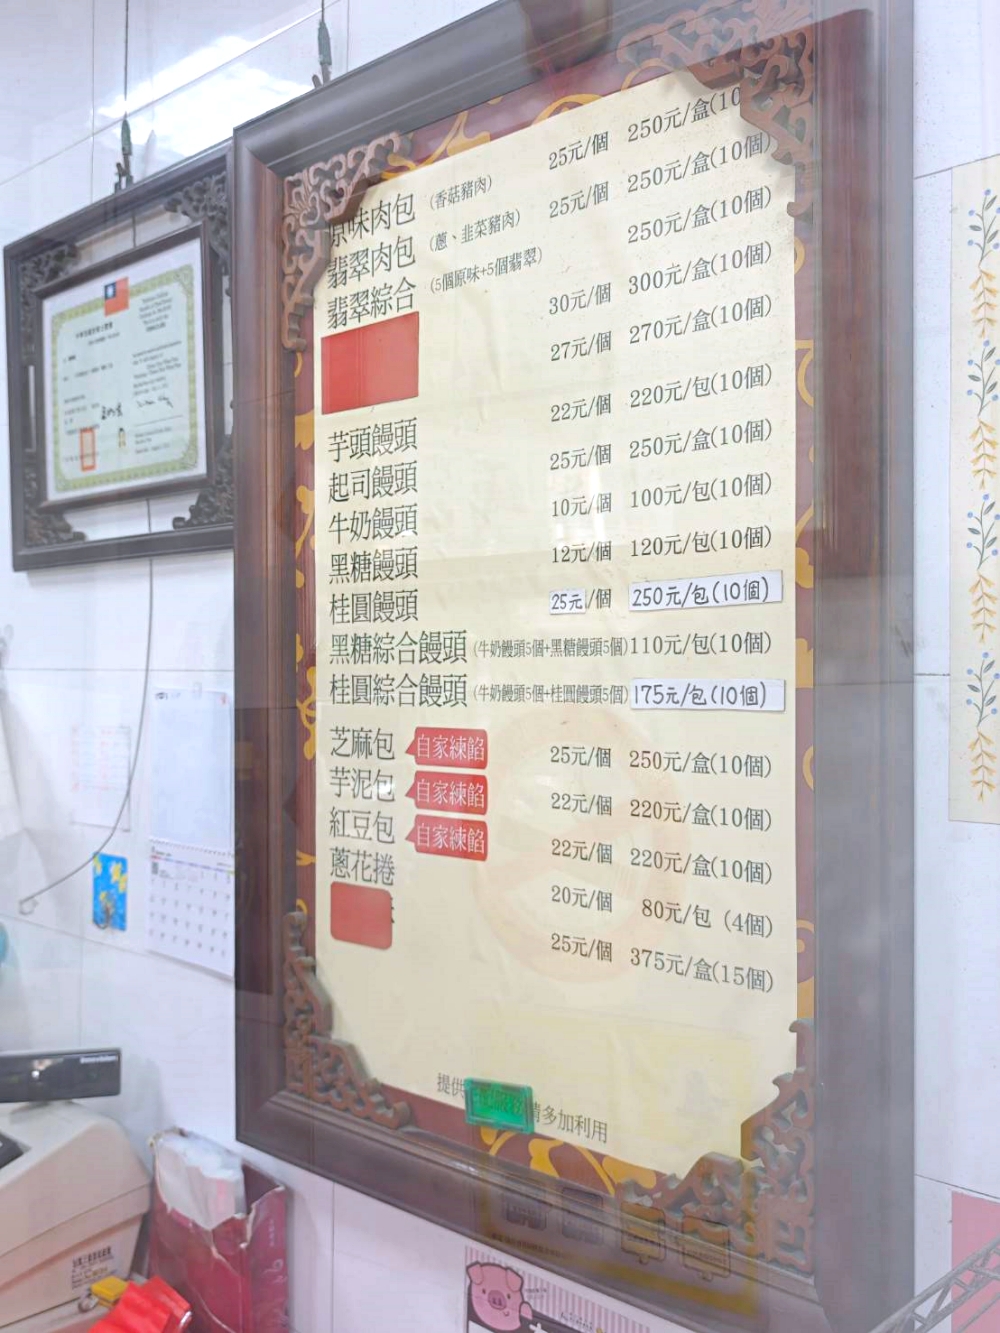 原味肉包 (香菇豬肉) 25元/個 250元/盒(10
翡翠肉包 (蔥、韭菜豬肉) 25元/個 250元/盒(10個)
翡翠綜合 (5個原味+5個翡翠) 250元/盒(10個)
30元/個 300元/盒(10個)
27元/個 270元/盒(10個)
芋頭饅頭 22元/個 220元/包(10個)
起司饅頭 25元/個 250元/盒(10個)
牛奶饅頭 10元/個 100元/包(10個)
黑糖饅頭 12元/個 120元/包(10個)
桂圓饅頭 25元/個 250元/包(10個)
黑糖綜合饅頭 (牛奶饅頭5個+黑糖饅頭5個) 110元/包(10個)
桂圓綜合饅頭 (牛奶饅頭5個+桂圓饅頭5個) 175元/包(10個)
芝麻包 自家練餡 25元/個 250元/盒(10個)
芋泥包 自家練餡 22元/個 220元/盒(10個)
紅豆包 自家練餡 22元/個 220元/盒(10個)
蔥花捲 20元/個 80元/包 (4個)
25元/個 375元/盒(15個)
提供 請多加利用